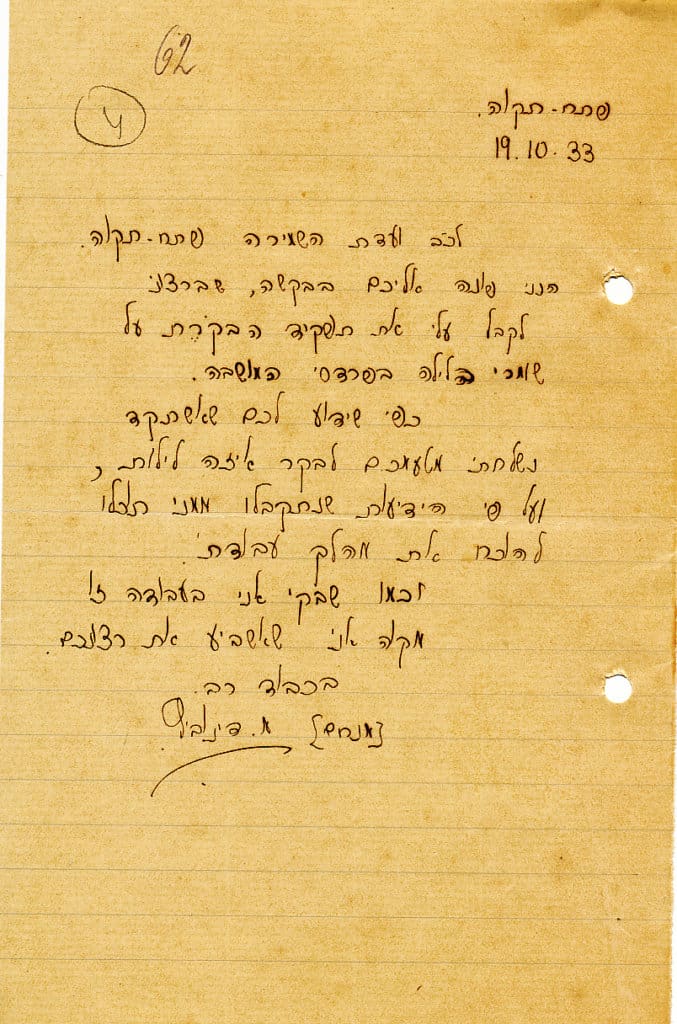 62
4
פתח-תקוה.
19.10.33
לכב ועדת השמירה פתח-תקוה.
הנני פונה אליכם בבקשה, שברצני
לקבל עלי את תפקיד הבקרת על
שומרי הלילה בפרדסי המושבה.
כפי שידוע לכם שאשתקד
נשלחתי מטעמכם לבקר איזה לילות,
ועל פי הידיעות שנתקבלו ממני תוכלו
להוכח את מהלך עבודתי.
וכמו שבקי אני בעבודה זו
מקוה אני שאשביע את רצונכם.
בכבוד רב.
[מנחם] מ.